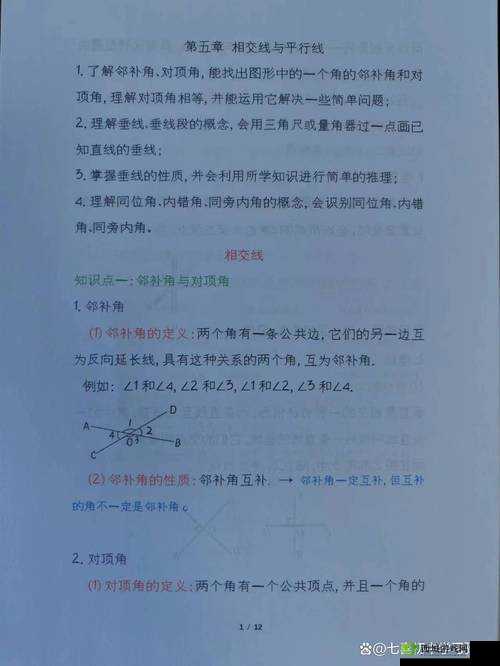 第五章 相交线与平行线
1.了解邻补角、对顶角,能找出图形中的一个角的邻补角和对
顶角,理解对顶角相等,并能运用它解决一些简单问题;
2.理解垂线、垂线段的概念,会用三角尺或量角器过一点画已
知直线的垂线;
3.掌握垂线的性质,并会利用所学知识进行简单的推理;
4.理解同位角、内错角、同旁内角的概念,会识别同位角、内错
角、同旁内角。
相交线
知识点一:邻补角与对顶角
1.邻补角
(1)邻补角的定义:两个角有一条公共边,它们的另一边互
为反向延长线,具有这种关系的两个角,互为邻补角.
例如:∠1和∠4,∠2和∠3,∠1和∠2,∠3和∠4.
D
A 1
4 2
O 3 B
C
(2)邻补角的性质:邻补角互补. → 邻补角一定互补,但互补
的角不一定是邻补角。
2.对顶角
(1)对顶角的定义:两个角有一个公共顶点,并且一个角的
1 / 12